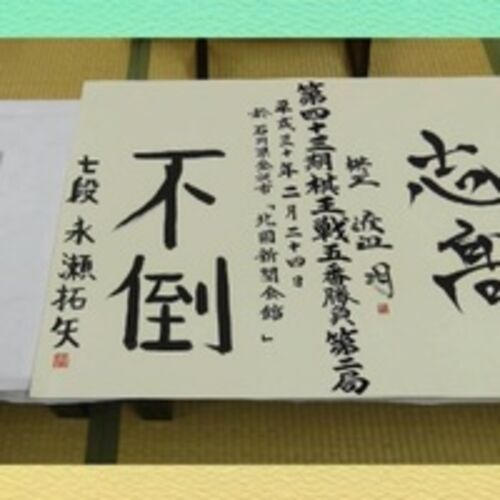 志高
棋王 渡辺 明
第四十三期棋王戦五番勝負第二局
平成三十年二月二十四日
於 石川県金沢市「北國新聞会館」
不倒
七段 永瀬拓矢